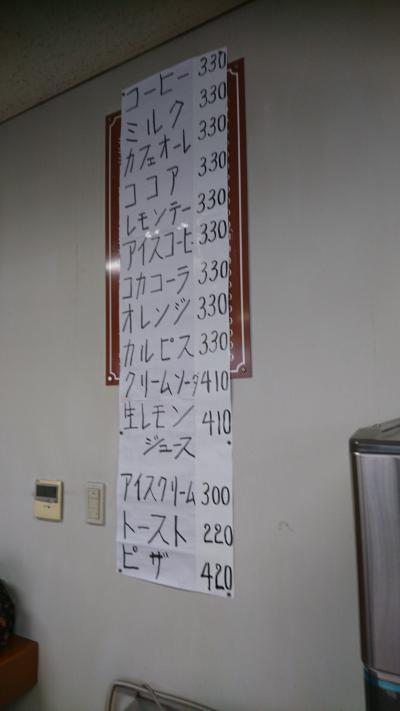 コーヒー 330
ミルク 330
カフェオーレ 330
ココア 330
レモンテー 330
アイスコーヒー 330
コカコーラ 330
オレンジ 330
カルピス 330
クリームソーダ 410
生レモン 410
ジュース
アイスクリーム 300
トースト 220
ピザ 420